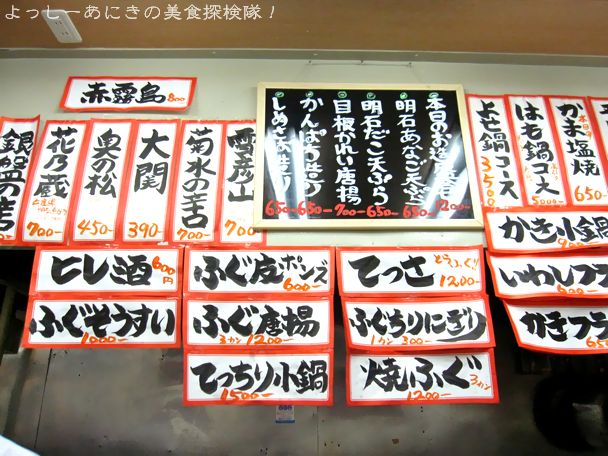 よっしーあにきの美食探検隊！
赤霧島 800
銀盤の舌
花乃蔵 700-
奥の松 450-
大関 390-
菊水の舌 700-
雪彦山 700
本日のお造盛合 1200-
明石あなご天ぷら 650-
明石だこ天ぷら 650-
目板かれい唐揚 700-
かんぱち造り 650-
しめさば造り 650-
はも鍋コース 5000-
かま塩焼 650-
かき小鍋
いわしフラ
かきフラ
ヒレ酒 600円
ふぐ皮ポンズ 600-
てっさ とらふぐ!! 1200-
ふぐぞうすい 1000-
ふぐ唐揚 3カン 1200-
ふぐちりにぎり 1カン 300-
てっちり小鍋 1500-
焼ふぐ 3カン 1200-